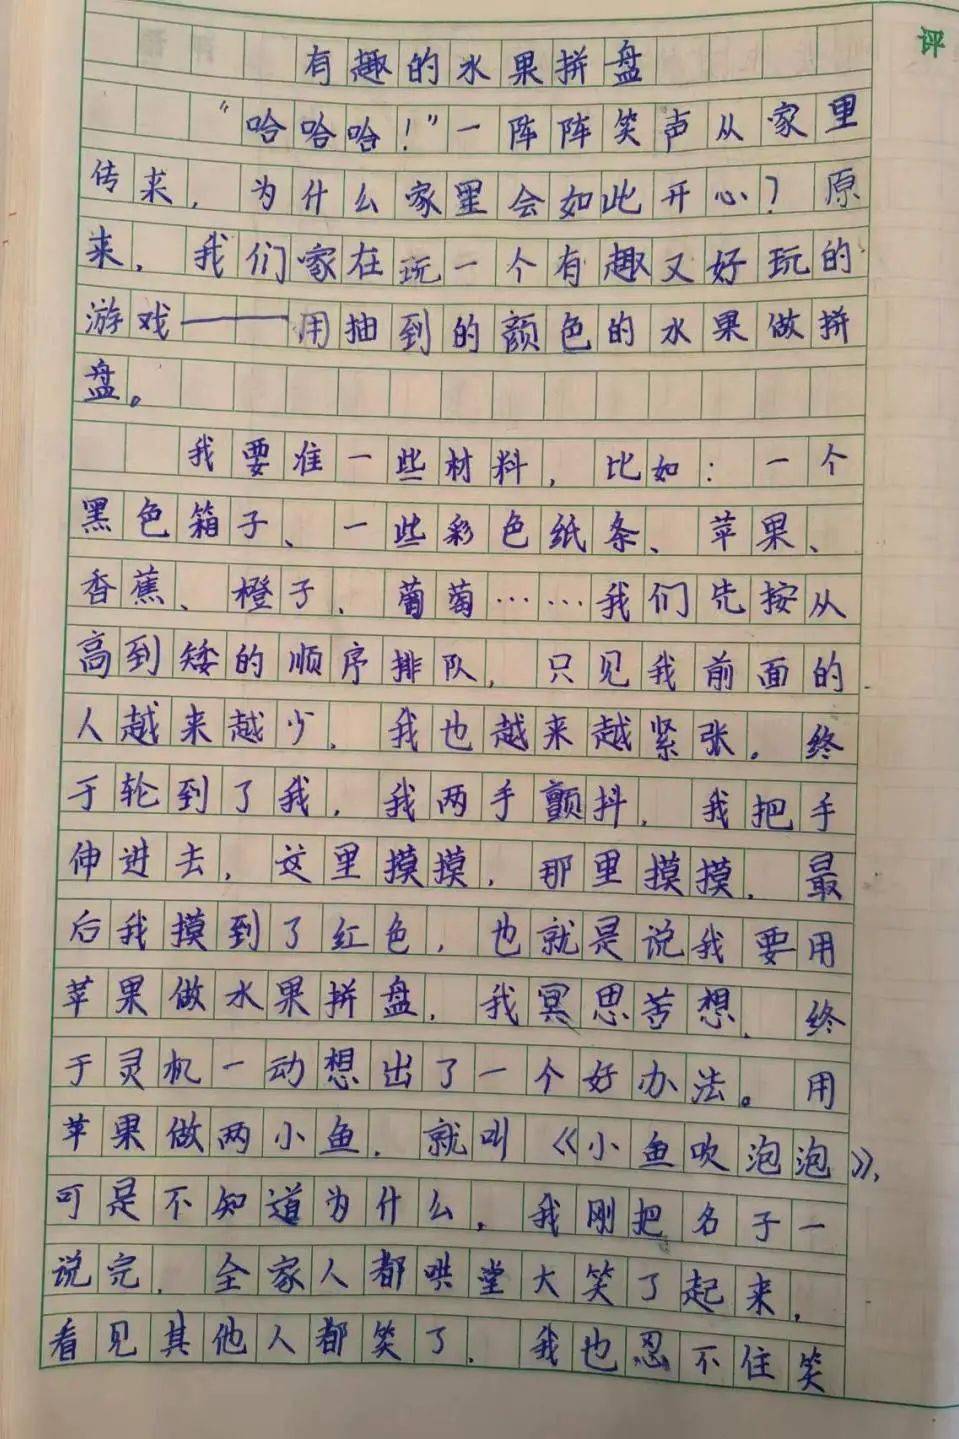 评
有趣的水果拼盘
“哈哈哈！”一阵阵笑声从家里
传来，为什么家里会如此开心？原
来，我们家在玩一个有趣又好玩的
游戏——用抽到的颜色的水果做拼
盘。
我要准一些材料，比如：一个
黑色箱子、一些彩色纸条、苹果、
香蕉、橙子、葡萄……我们先按从
高到矮的顺序排队，只见我前面的
人越来越少，我也越来越紧张，终
于轮到了我，我两手颤抖，我把手
伸进去，这里摸摸，那里摸摸，最
后我摸到了红色，也就是说我要用
苹果做水果拼盘，我冥思苦想，终
于灵机一动想出了一个好办法。用
苹果做两小鱼，就叫《小鱼吹泡泡》，
可是不知道为什么，我刚把名子一
说完，全家人都哄堂大笑了起来，
看见其他人都笑了，我也忍不住笑